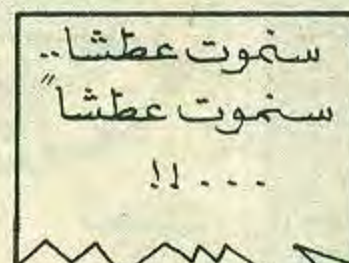 سنموت عطشا..
سنموت عطشاً
...!!